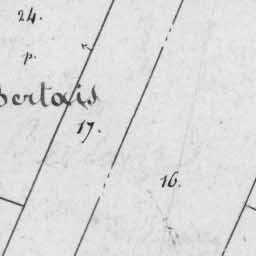 24.
p.
Bertais
17.
16.